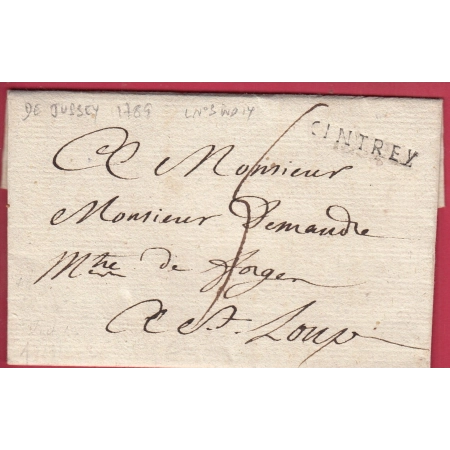 DE JUSSEY 1789 LN°3 IND 14
CINTREY
A Monsieur
Monsieur Demandre
Mtre de forges
A St. Loup